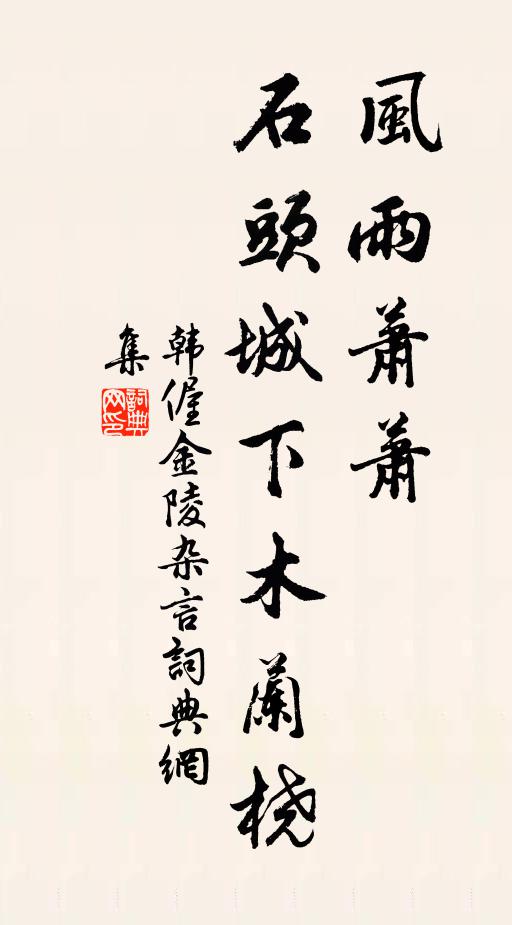 風雨蕭蕭
石頭城下木蘭桡
韩偓金陵杂言詞典網
集
詞典
网印